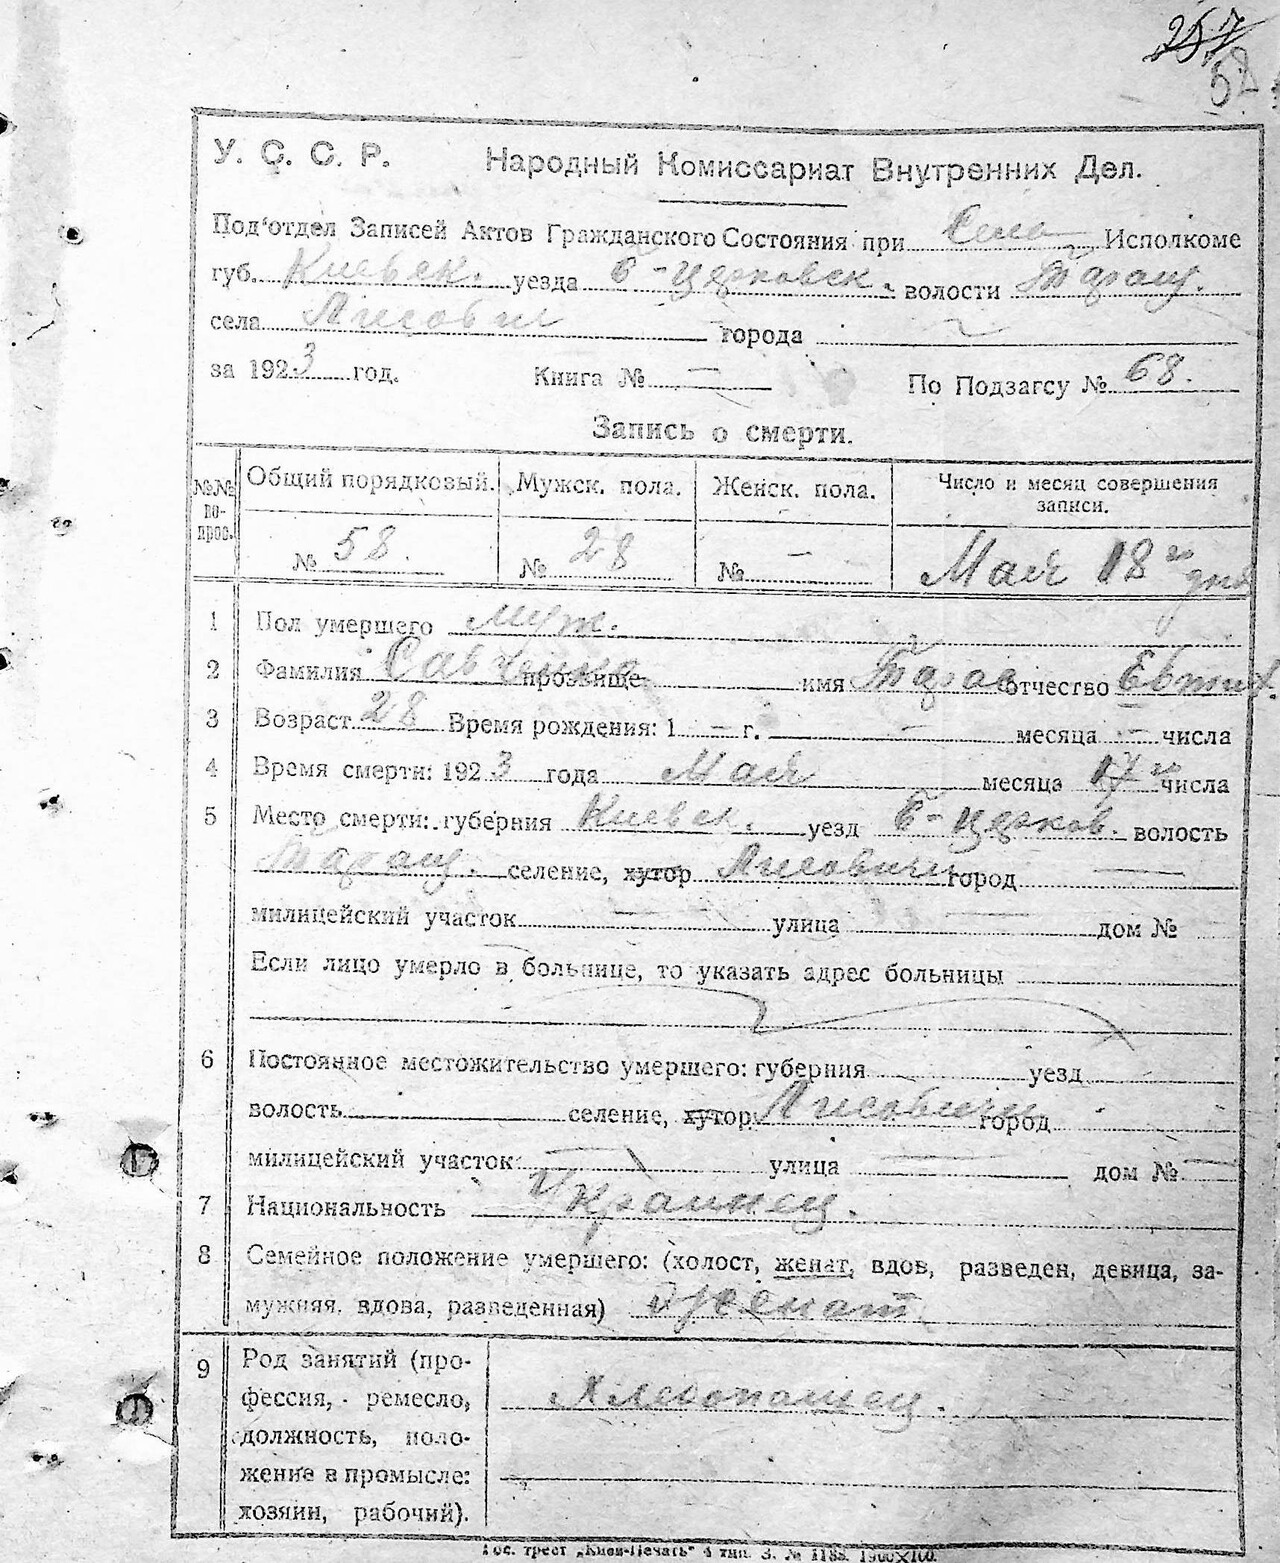 257
58
У. С. С. Р. Народный Комиссариат Внутренних Дел.
Под'отдел Записей Актов Гражданского Состояния при Села Исполкоме
губ. Киевск. уезда Б-Церковск. волости Таращ.
села города
за 1923 год. Книга № — По Подзагсу № 68.
Запись о смерти.
№№ вопрос. Общий порядковый. Мужск. пола. Женск. пола. Число и месяц совершения записи.
№ 58. № 28 № — Мая 18го дня
1 Пол умершего муж.
2 Фамилия Савченко прозвище имя Тарас отчество Евтих.
3 Возраст 28 Время рождения: 1 — г. — месяца — числа
4 Время смерти: 1923 года Мая месяца 17го числа
5 Место смерти: губерния Киевск. уезд Б-Церков. волость
Таращ. селение, хутор Лисовичи город —
милицейский участок — улица — дом №
Если лицо умерло в больнице, то указать адрес больницы
6 Постоянное местожительство умершего: губерния уезд
волость селение, хутор Лисовичи город
милицейский участок — улица — дом № —
7 Национальность Украинец.
8 Семейное положение умершего: (холост, женат, вдов, разведен, девица, за-
мужняя, вдова, разведенная) женат.
9 Род занятий (про-
фессия, ремесло, Хлебопашец.
должность, поло-
жение в промысле:
хозяин, рабочий).
Гос. трест „Киев-Печать" 4 тип. З. № 1188. 1900×100.